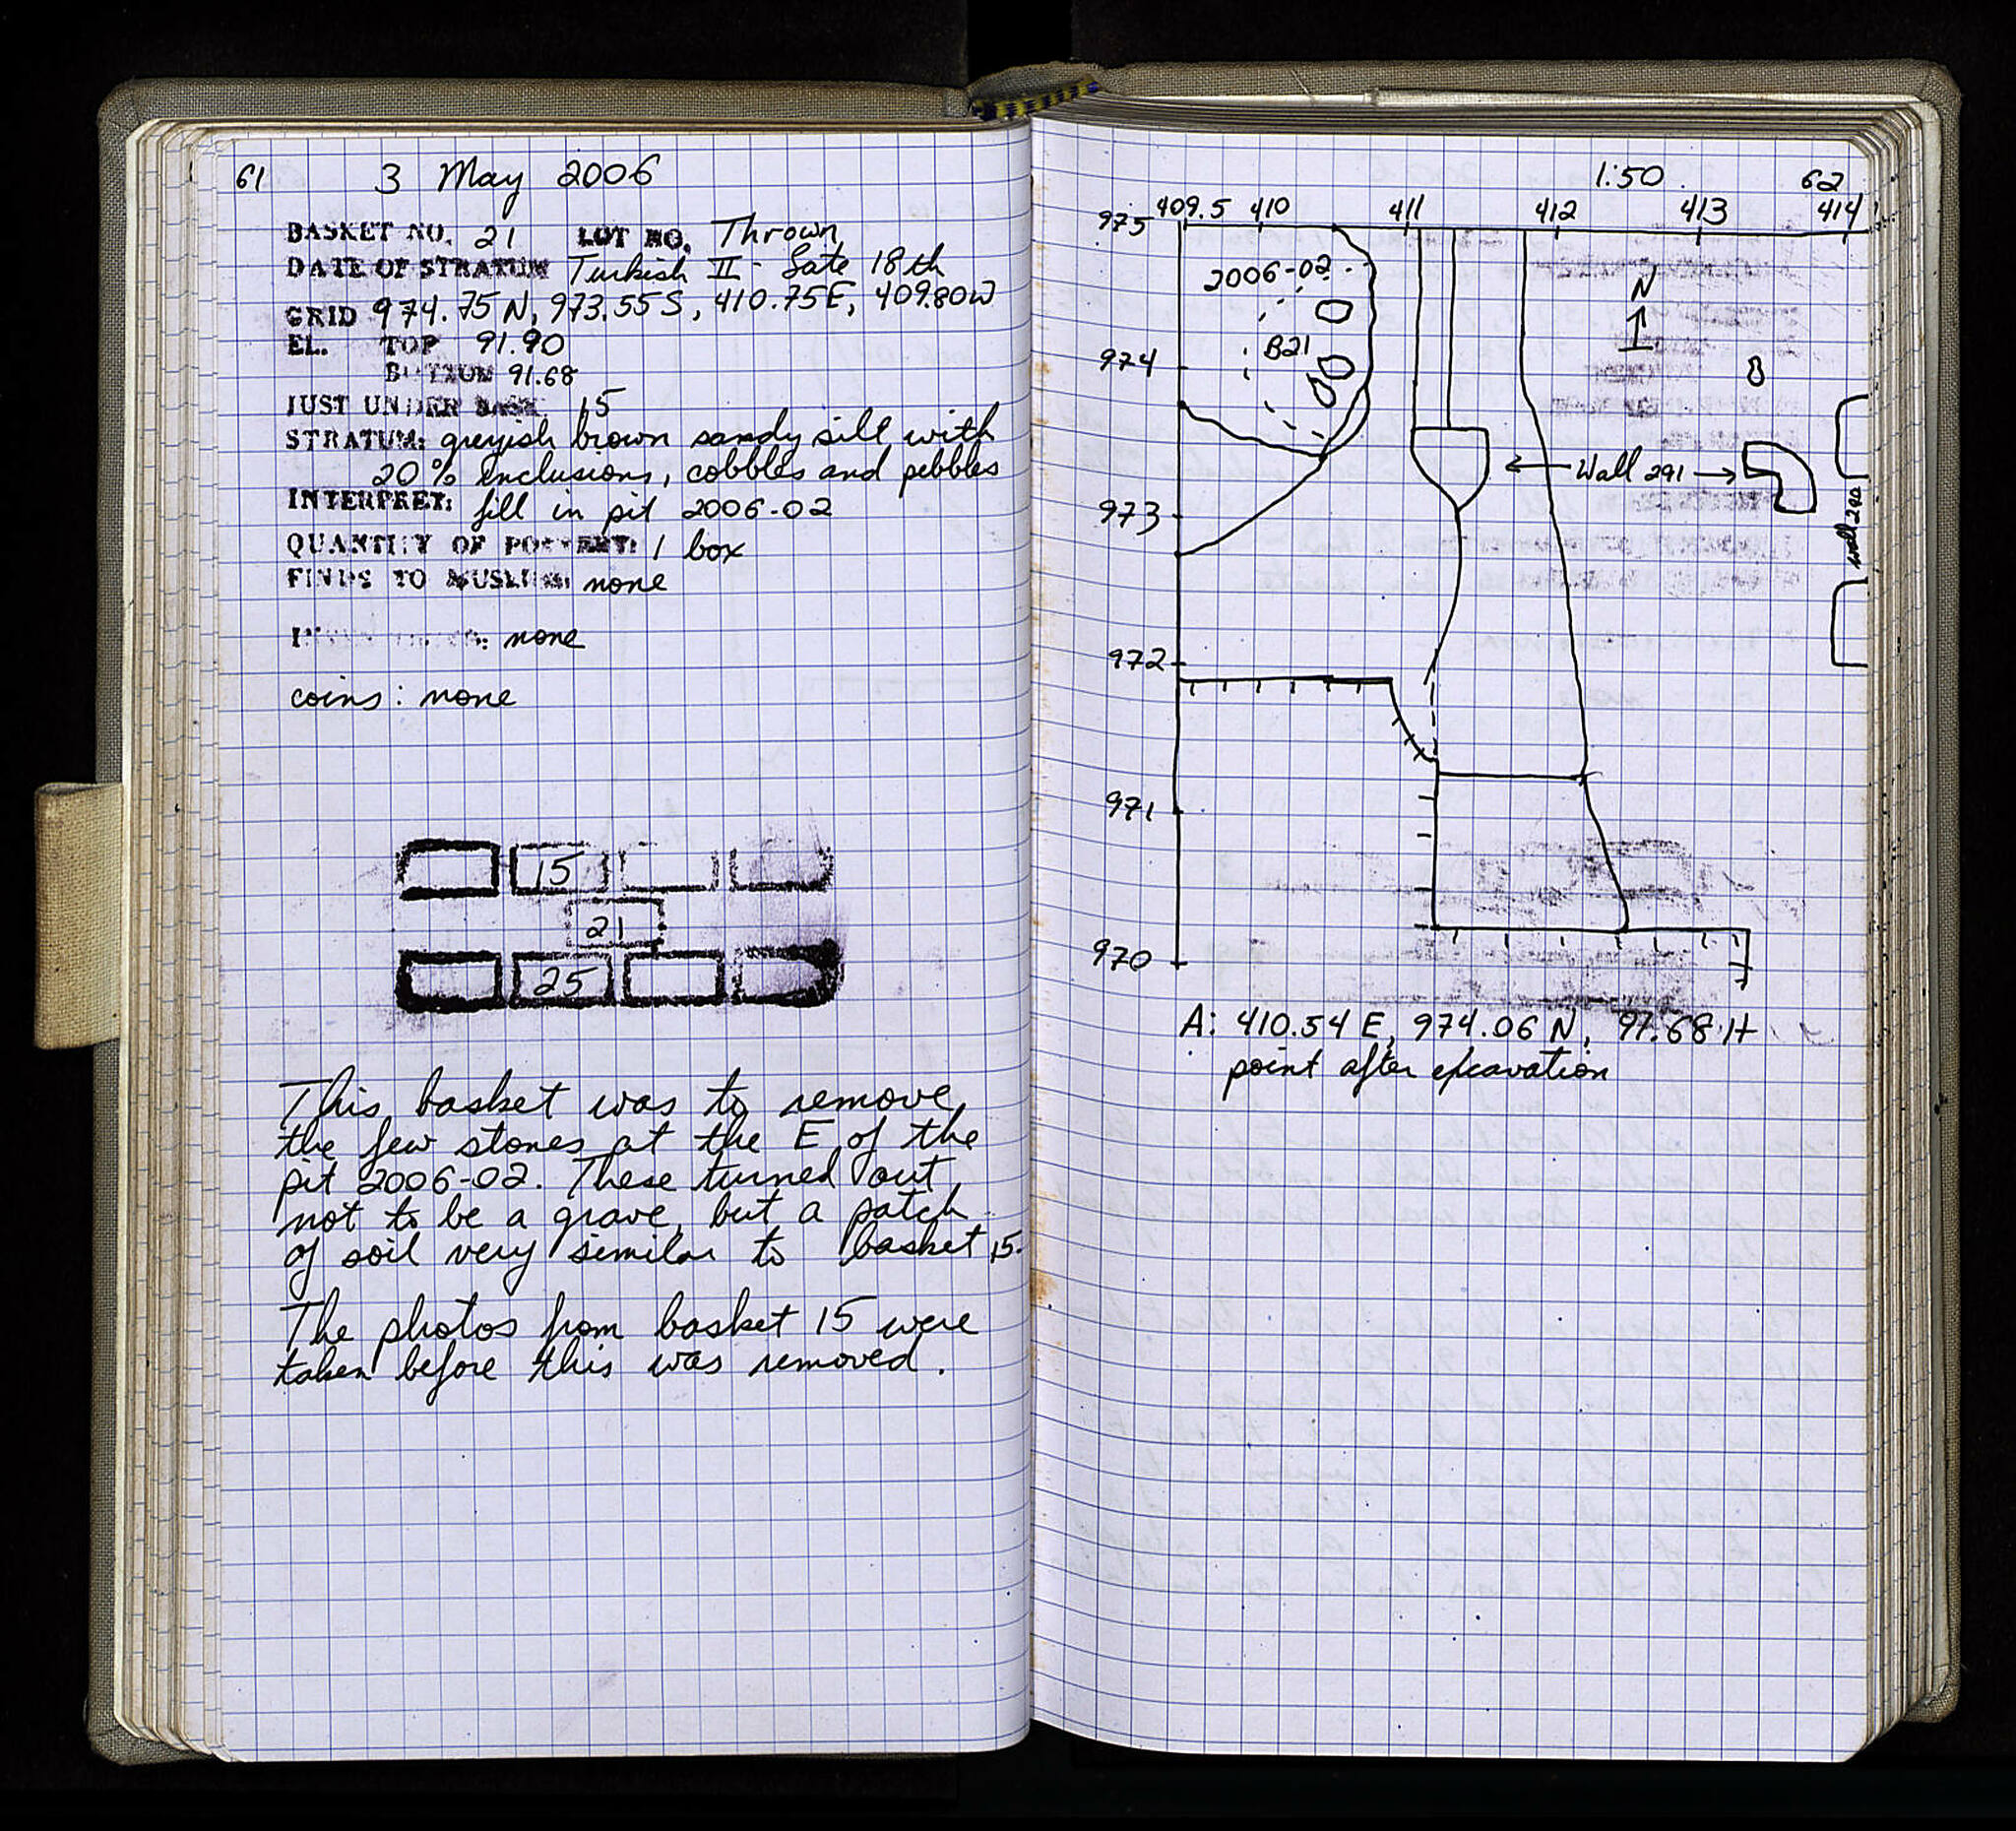 61 3 May 2006
BASKET NO. 21 LOT NO. Thrown
DATE OF STRATUM Turkish II - Late 18th
GRID 974.75N, 973.55S, 410.75E, 409.80W
EL. TOP 91.90
BOTTOM 91.68
JUST UNDER BASK. 15
STRATUM: greyish brown sandy silt with
20% inclusions, cobbles and pebbles
INTERPRET: fill in pit 2006-02
QUANTITY OF POTTERY: 1 box
FINDS TO MUSEUM: none
none
coins: none
15
21
25
This basket was to remove
the few stones at the E of the
pit 2006-02. These turned out
not to be a grave, but a patch
of soil very similar to basket 15.
The photos from basket 15 were
taken before this was removed.
1:50 62
975 409.5 410 411 412 413 414
2006-02
N
B21
974
← Wall 291 →
973
wall 290
972
971
970
A: 410.54 E, 974.06 N, 97.68 H
point after excavation